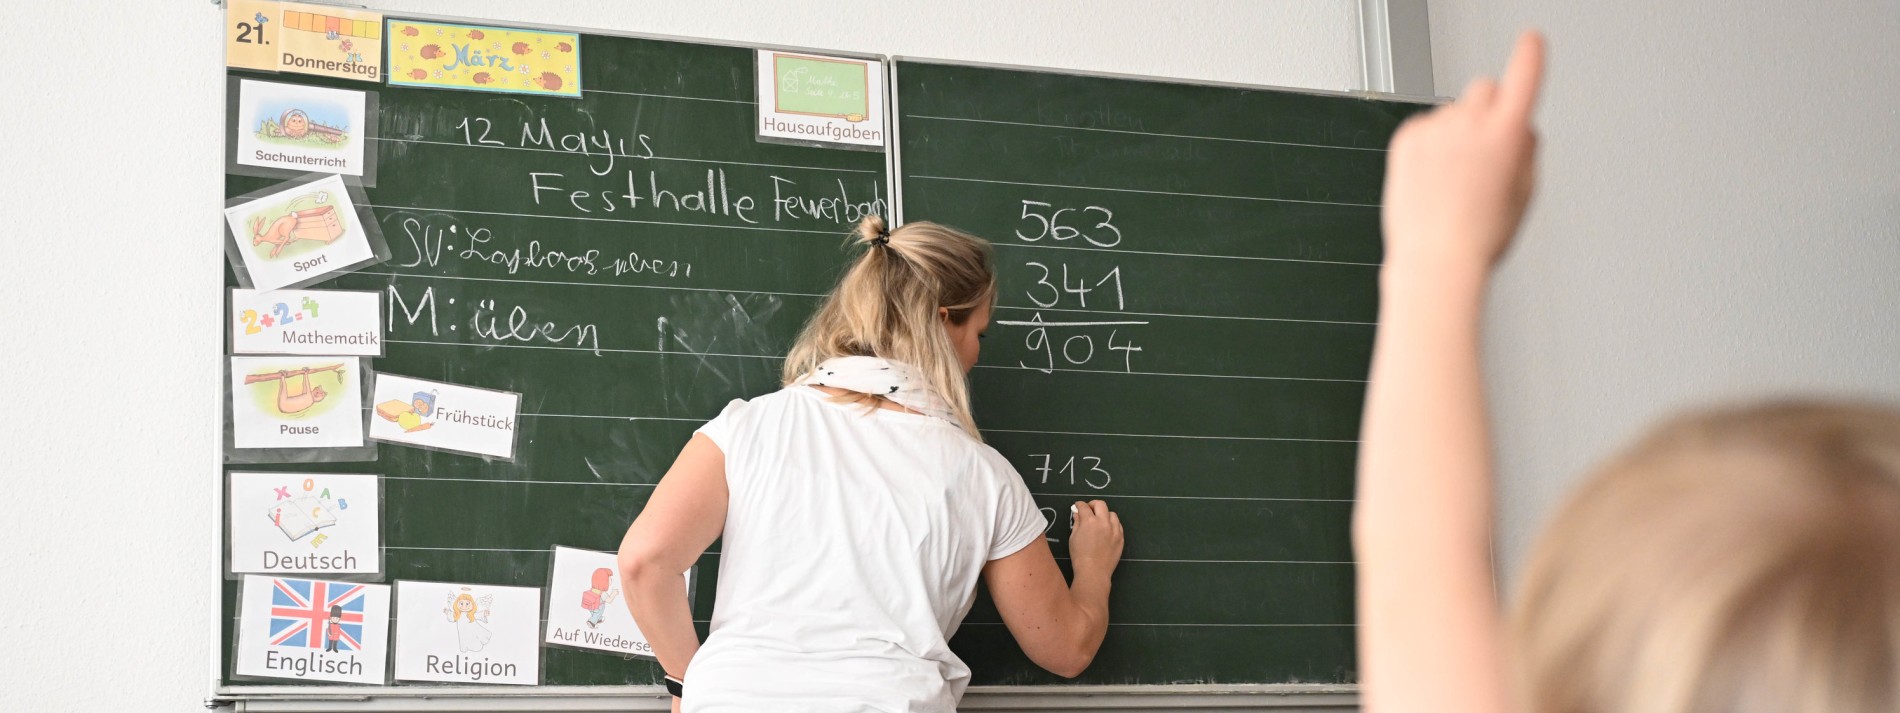 21.
Donnerstag
März
Hausaufgaben
Sachunterricht
12 Mayıs
Festhalle Feuerbach
Sport
SU: Lapbook üben
2+2=4
Mathematik
M: üben
Pause
Frühstück
Deutsch
Englisch
Religion
Auf Wiederse
563
341
904
713
2